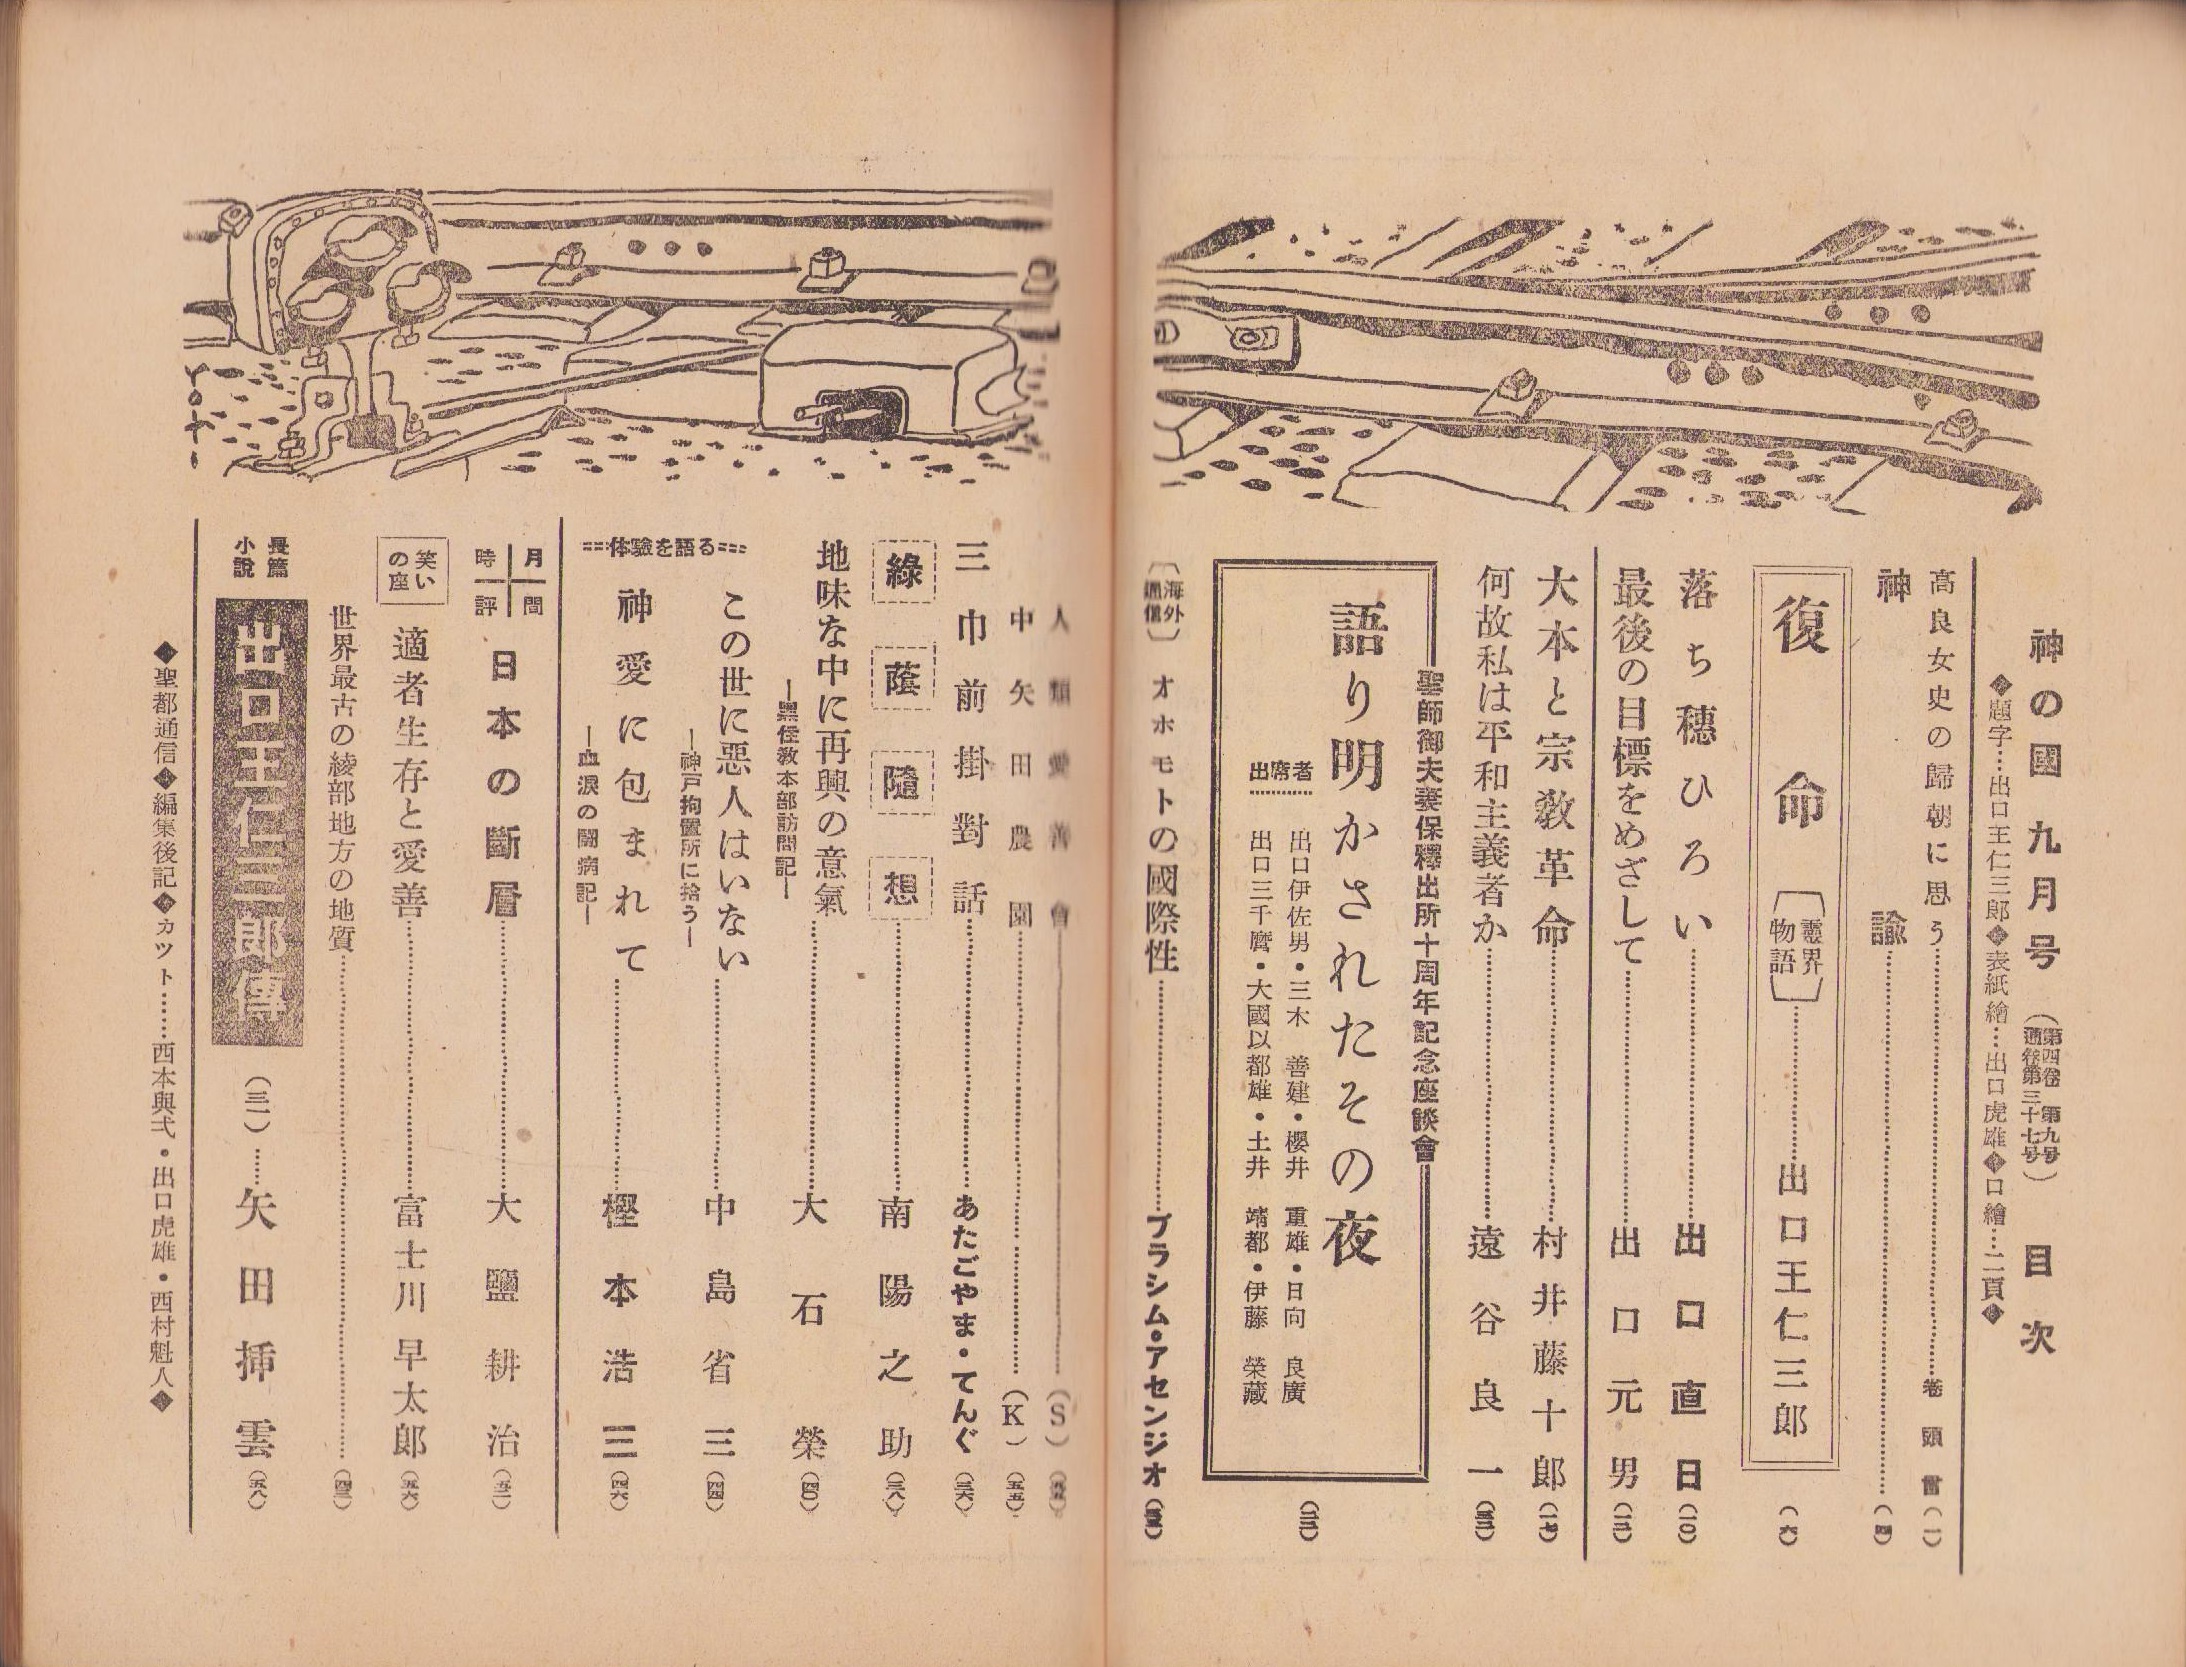 神の國 九月号 (第四卷 第九号 通卷第三十七号) 目次
◆題字…出口王仁三郎◆表紙繪…出口虎雄◆口繪…二頁◆
高良女史の歸朝に思う 卷頭言 (一)
神諭 (四)
復命 〔靈界物語〕 出口王仁三郎 (六)
落ち穗ひろい 出口直日 (一〇)
最後の目標をめざして 出口元男 (一二)
大本と宗敎革命 村井藤十郎 (一七)
何故私は平和主義者か 遠谷良一
聖師御夫妻保釋出所十周年記念座談會
語り明かされたその夜
出席者
出口伊佐男・三木善建・櫻井重雄・日向良廣
出口三千麿・大國以都雄・土井靖都・伊藤榮藏
〔海外通信〕 オホモトの國際性 ブラシム・アセンジオ
人類愛善會 (S)
中矢田農園 (K) (五五)
三巾前掛對話 あたごやま・てんぐ (三六)
綠蔭隨想 南陽之助 (三八)
地味な中に再興の意氣 大石榮 (四〇)
―黑住敎本部訪問記―
==体驗を語る==
この世に惡人はいない 中島省三 (四四)
―神戸拘置所に拾う―
神愛に包まれて 樫本浩三 (四六)
―血淚の鬪病記―
月間時評 日本の斷層 大鹽耕治 (五一)
笑いの座 適者生存と愛善 富士川早太郎 (五六)
世界最古の綾部地方の地質
長篇小說 出口王仁三郎傳 (三一) 矢田挿雲 (五八)
◆聖都通信◆編集後記◆カット……西本與弌・出口虎雄・西村魁人◆